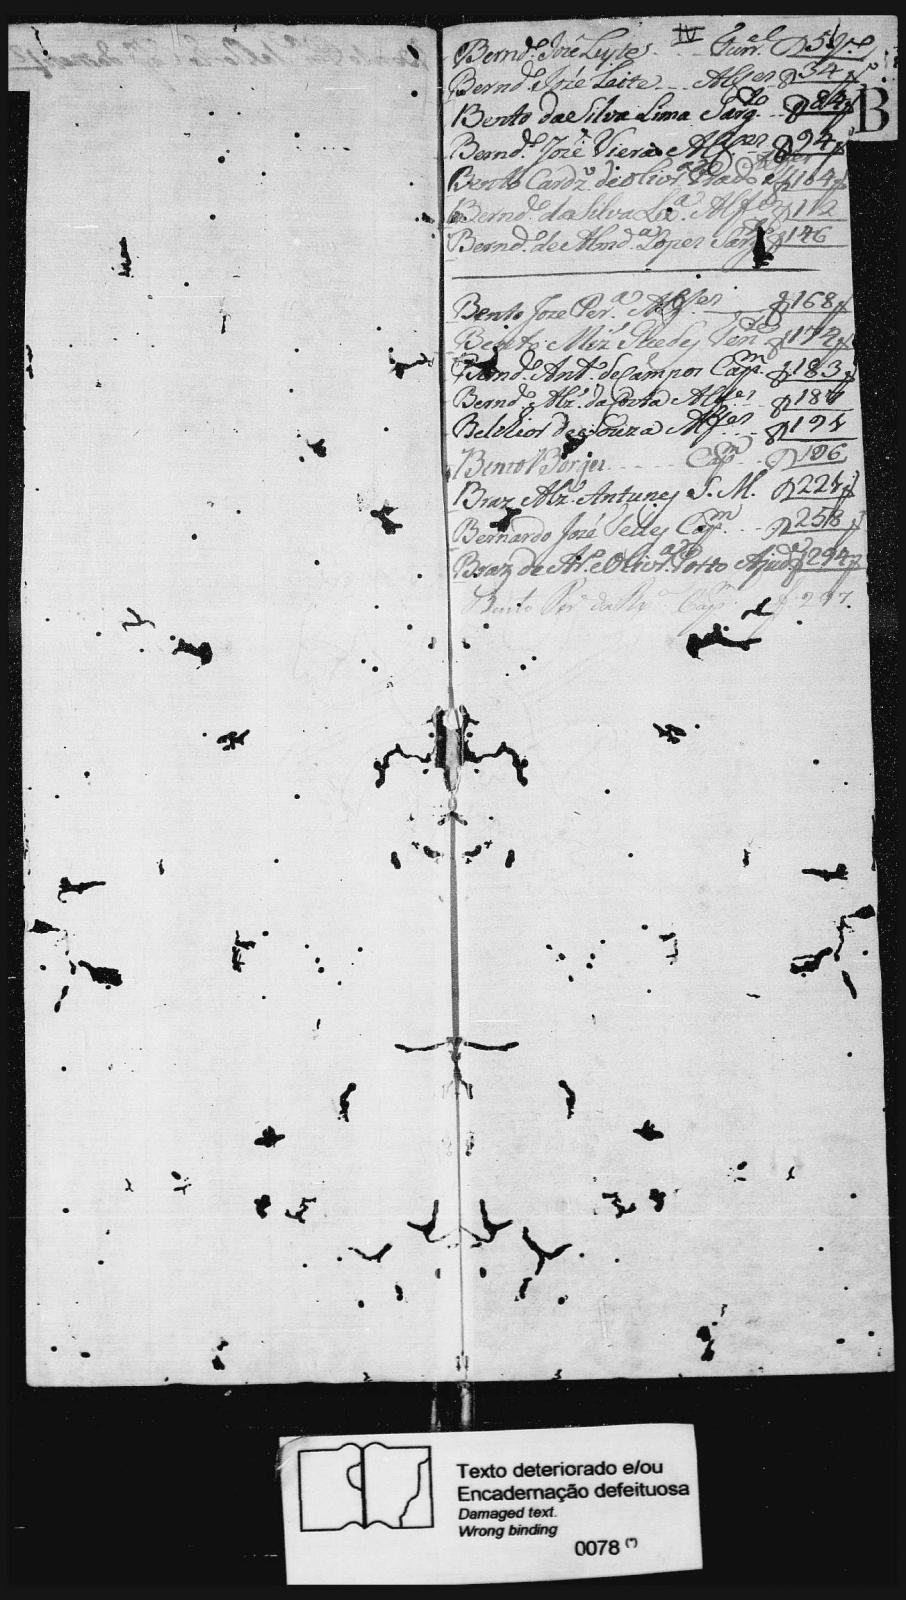 IV
B
Bernd.º José Leytes - Furr.el
Bernd.º José Leite - Alfer 34
Bento da Silva Lima Sarg.to 84
Bernd.º José Viera Alfer 94
Bento Cardz.º de Olivr.a Prado 164
Bernd.º da Silva Alfer 112
Bernd.º de Almd.a Lopes Sarg.to 146
Bento Joze Per.a Alfer 168
Bento Miz Ten.e 174
Bernd.º Ant.º de Campos Cap.m 183
Bernd.º Alz. da Costa Alfer 187
Belchior de Souza Alfer 194
Bento Borges Cap.m 196
Braz Alz. Antunes S. M. 221
Bernardo José Telles Cap.m 258
Braz de Ar.º e Olivr.a Porto Ajud.e 294
Bento Per.a da S.a Cap.m 297.
Texto deteriorado e/ou
Encadernação defeituosa
Damaged text.
Wrong binding
0078 (*)